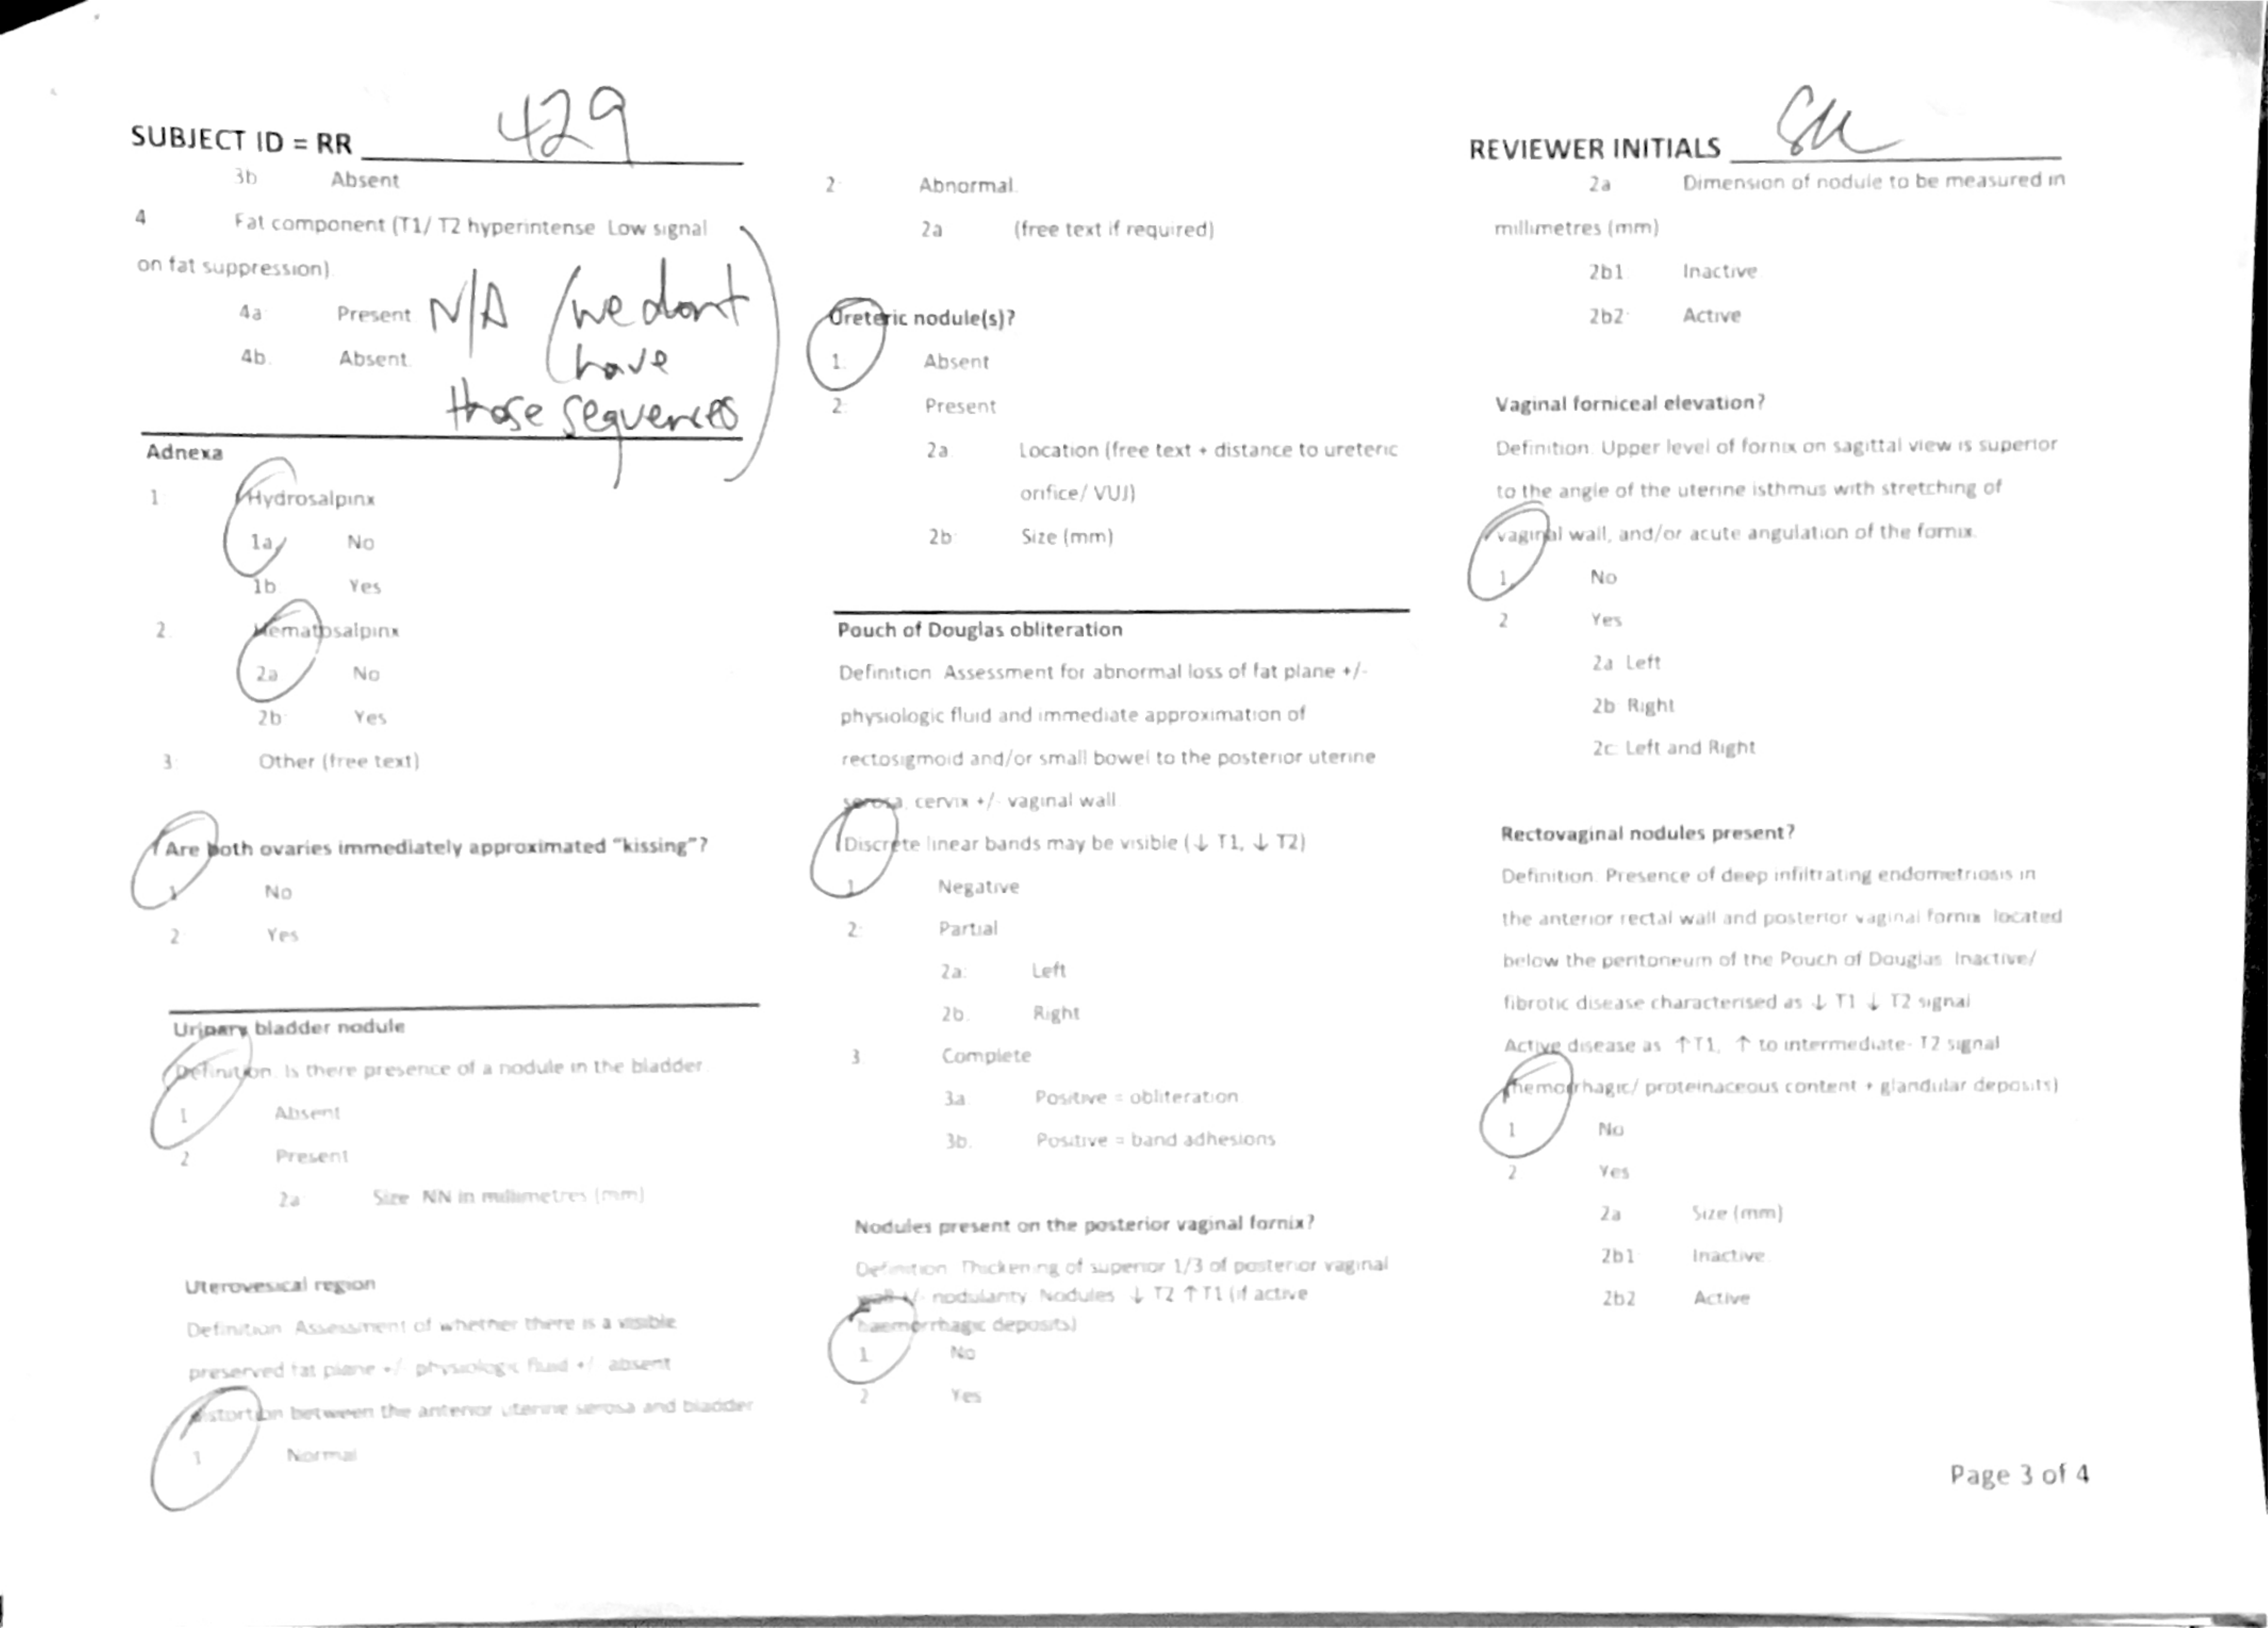 SUBJECT ID = RR 429
3b Absent
4 Fat component (T1/ T2 hyperintense Low signal
on fat suppression)
4a: Present
4b. Absent.
N/A (we dont
have
those sequences)
Adnexa
1 Hydrosalpinx
1a No
1b Yes
2. Hematosalpinx
2a No
2b: Yes
3: Other (free text)
Are both ovaries immediately approximated “kissing”?
1 No
2 Yes
Urinary bladder nodule
Definition. Is there presence of a nodule in the bladder.
1 Absent
2 Present
2a Size NN in millimetres (mm)
Uterovesical region
Definition Assessment of whether there is a visible
preserved fat plane +/ physiologic fluid +/ absent
distortion between the anterior uterine serosa and bladder
1 Normal
2: Abnormal.
2a (free text if required)
Ureteric nodule(s)?
1. Absent
2: Present
2a. Location (free text + distance to ureteric
orifice/ VUJ)
2b: Size (mm)
Pouch of Douglas obliteration
Definition Assessment for abnormal loss of fat plane +/-
physiologic fluid and immediate approximation of
rectosigmoid and/or small bowel to the posterior uterine
serosa, cervix +/- vaginal wall.
Discrete linear bands may be visible (↓ T1, ↓ T2)
1 Negative
2: Partial
2a: Left
2b. Right
3 Complete
3a. Positive = obliteration
3b. Positive = band adhesions
Nodules present on the posterior vaginal fornix?
Definition Thickening of superior 1/3 of posterior vaginal
wall +/- nodularity Nodules ↓ T2 ↑ T1 (if active
haemorrhagic deposits)
1. No
2 Yes
REVIEWER INITIALS
2a Dimension of nodule to be measured in
millimetres (mm)
2b1 Inactive
2b2: Active
Vaginal forniceal elevation?
Definition. Upper level of fornix on sagittal view is superior
to the angle of the uterine isthmus with stretching of
vaginal wall, and/or acute angulation of the fornix.
1. No
2 Yes
2a Left
2b Right
2c: Left and Right
Rectovaginal nodules present?
Definition. Presence of deep infiltrating endometriosis in
the anterior rectal wall and posterior vaginal fornix located
below the peritoneum of the Pouch of Douglas Inactive/
fibrotic disease characterised as ↓ T1 ↓ T2 signal
Active disease as ↑T1, ↑ to intermediate- T2 signal
(hemorrhagic/ proteinaceous content + glandular deposits)
1 No
2 Yes
2a Size (mm)
2b1 Inactive
2b2 Active
Page 3 of 4